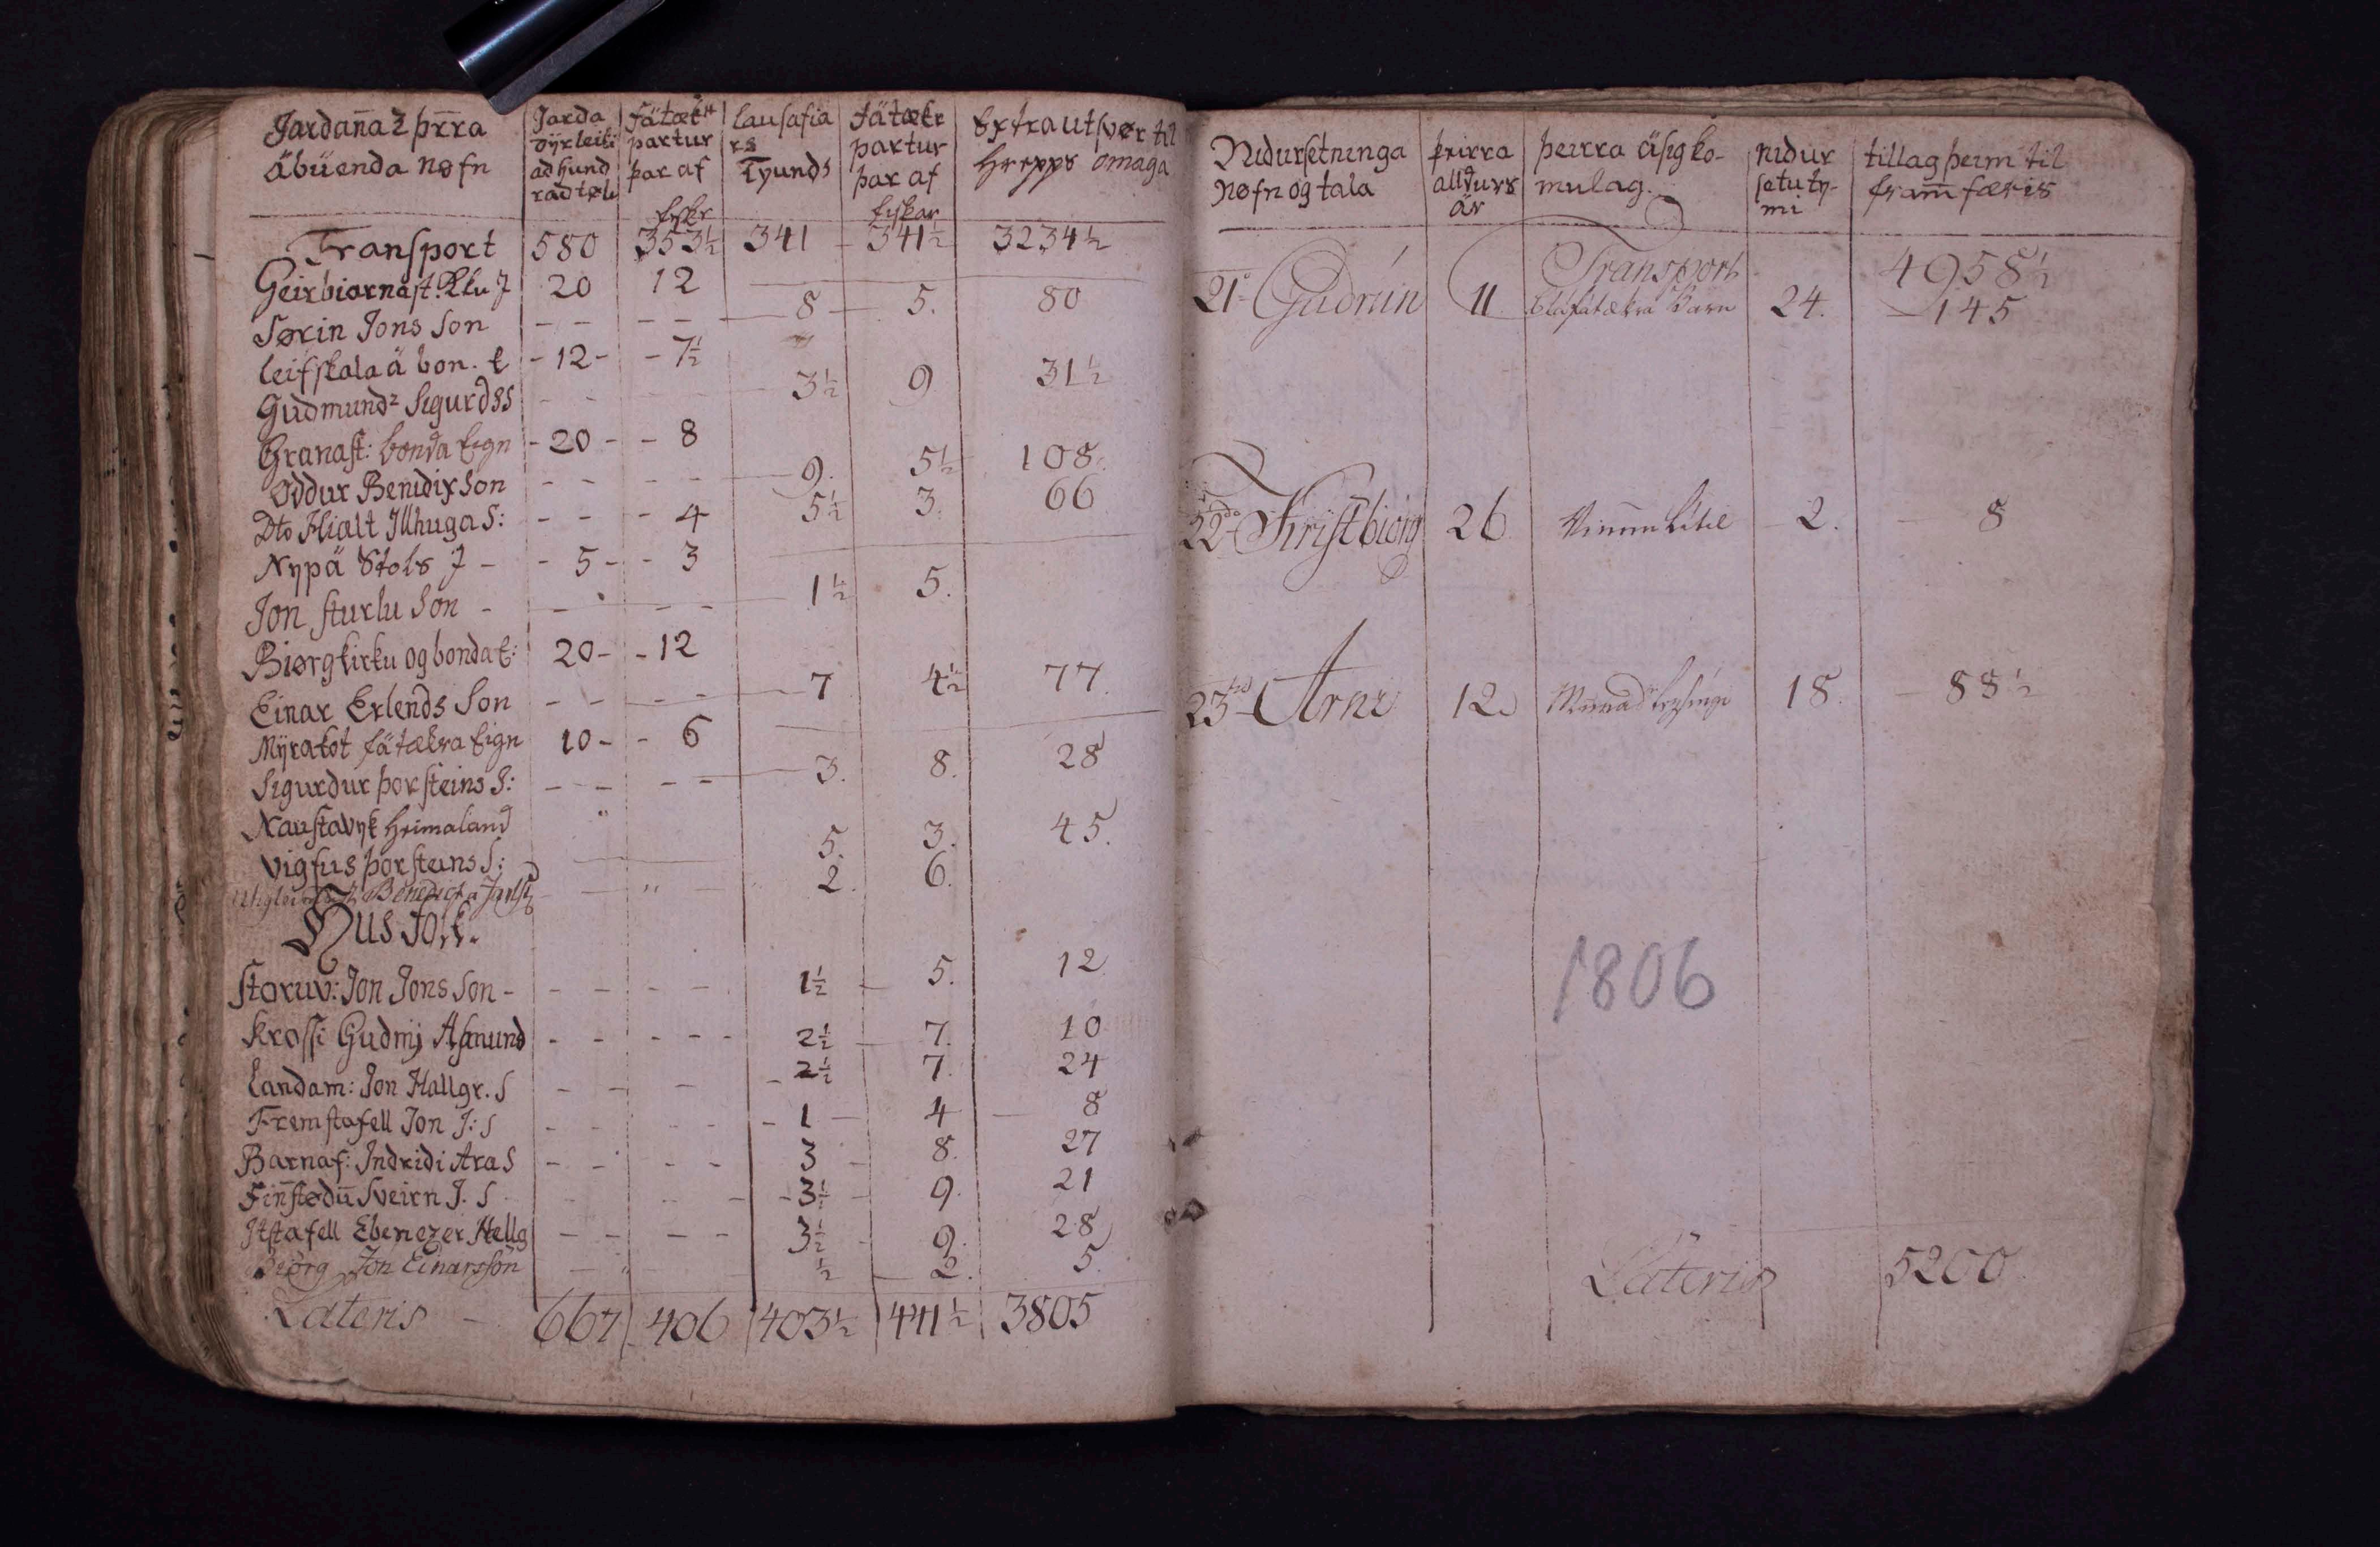 Jardan̄a ꝛ þr̄ra
äbüenda nøfn
Jarda
dyrleik
ad hund
rad tølu
Fätækr
partur
þar af
fyskr
lausafiä
rs
Tyunds
fätækr
partur
þar af
fyskar
Extra utsvør til
hrepps omaga
Transport 580 353½ 341 341½ 3234½
Geirbiarnast: Klu J 20 12
Sørin Jons Son - - - - 8 5. 80
leifskala ä bon. E - 12 - - 7½
Gudmundꝛ Sigurdss - - 3½ 9 31½
Granast: bonda Eign - 20 - - 8
Oddur Benidix Son - - - - 9. 5½ 108.
Dto Hialt Illhuga S: - - - 4 5½ 3. 66
Nypä Stols J - - 5 - - 3
Jon sturlu Son - - - - 1½ 5.
Biørg kirku og bonda E: 20 - - 12
Einar Erlends Son - - - - 7 4½ 77.
Mÿrakot fätækra Eign 10 - - 6
Sigurdur þorsteins S: - - - - 3. 8. 28
Naustavyk heimaland "
Vigfus þorsteins S: 5. 3. 45.
Benedict a - " - 2. 6.
Hus folk.
Storuv: Jon Jons Son - - - - - 1½ 5. 12.
krossi Gudmj Asmund - - - - - 2½ 7. 10
Landam: Jon Hallgr. S - - - - 2½ 7. 24
Fremstafell Jon J: S - - - - - 1 - 4 8
Barnaf: Indridi Ara S - - - - 3 - 8. 27
Fin̄stødū Sveirn J. S - - - 3½ - 9. 21
Ytstafell Ebenezer Hellg - - - - 3½ - 9. 28
Biörg Jón Einarsson - " ½ 2. 5.
Lateris - 667 406 403½ 441½ 3805
Nidursetninga
nøfn og tala
þeirra
alldurs
är
þeirra äsigko-
mulag.
nidur
setu ty-
mi
tillag þeim til
fram̄færis
Transport 4958½
21º Gudrún 11 fátækra Barn 24. 145
22do Kristbiörg 26 2. 8
23tid Arne 12. 18. 88½
1806
Lateris 5200